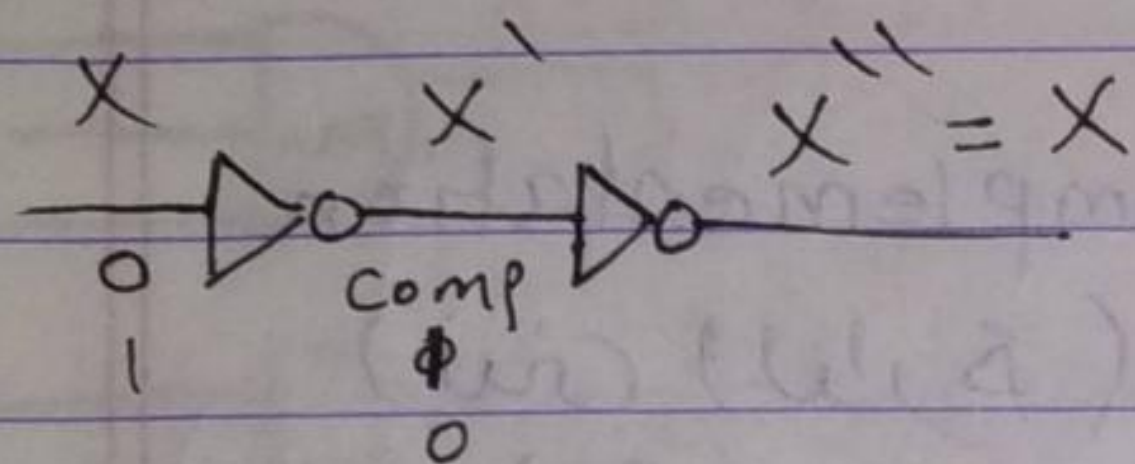 X X` X`` = X
0 Comp
1 1
0